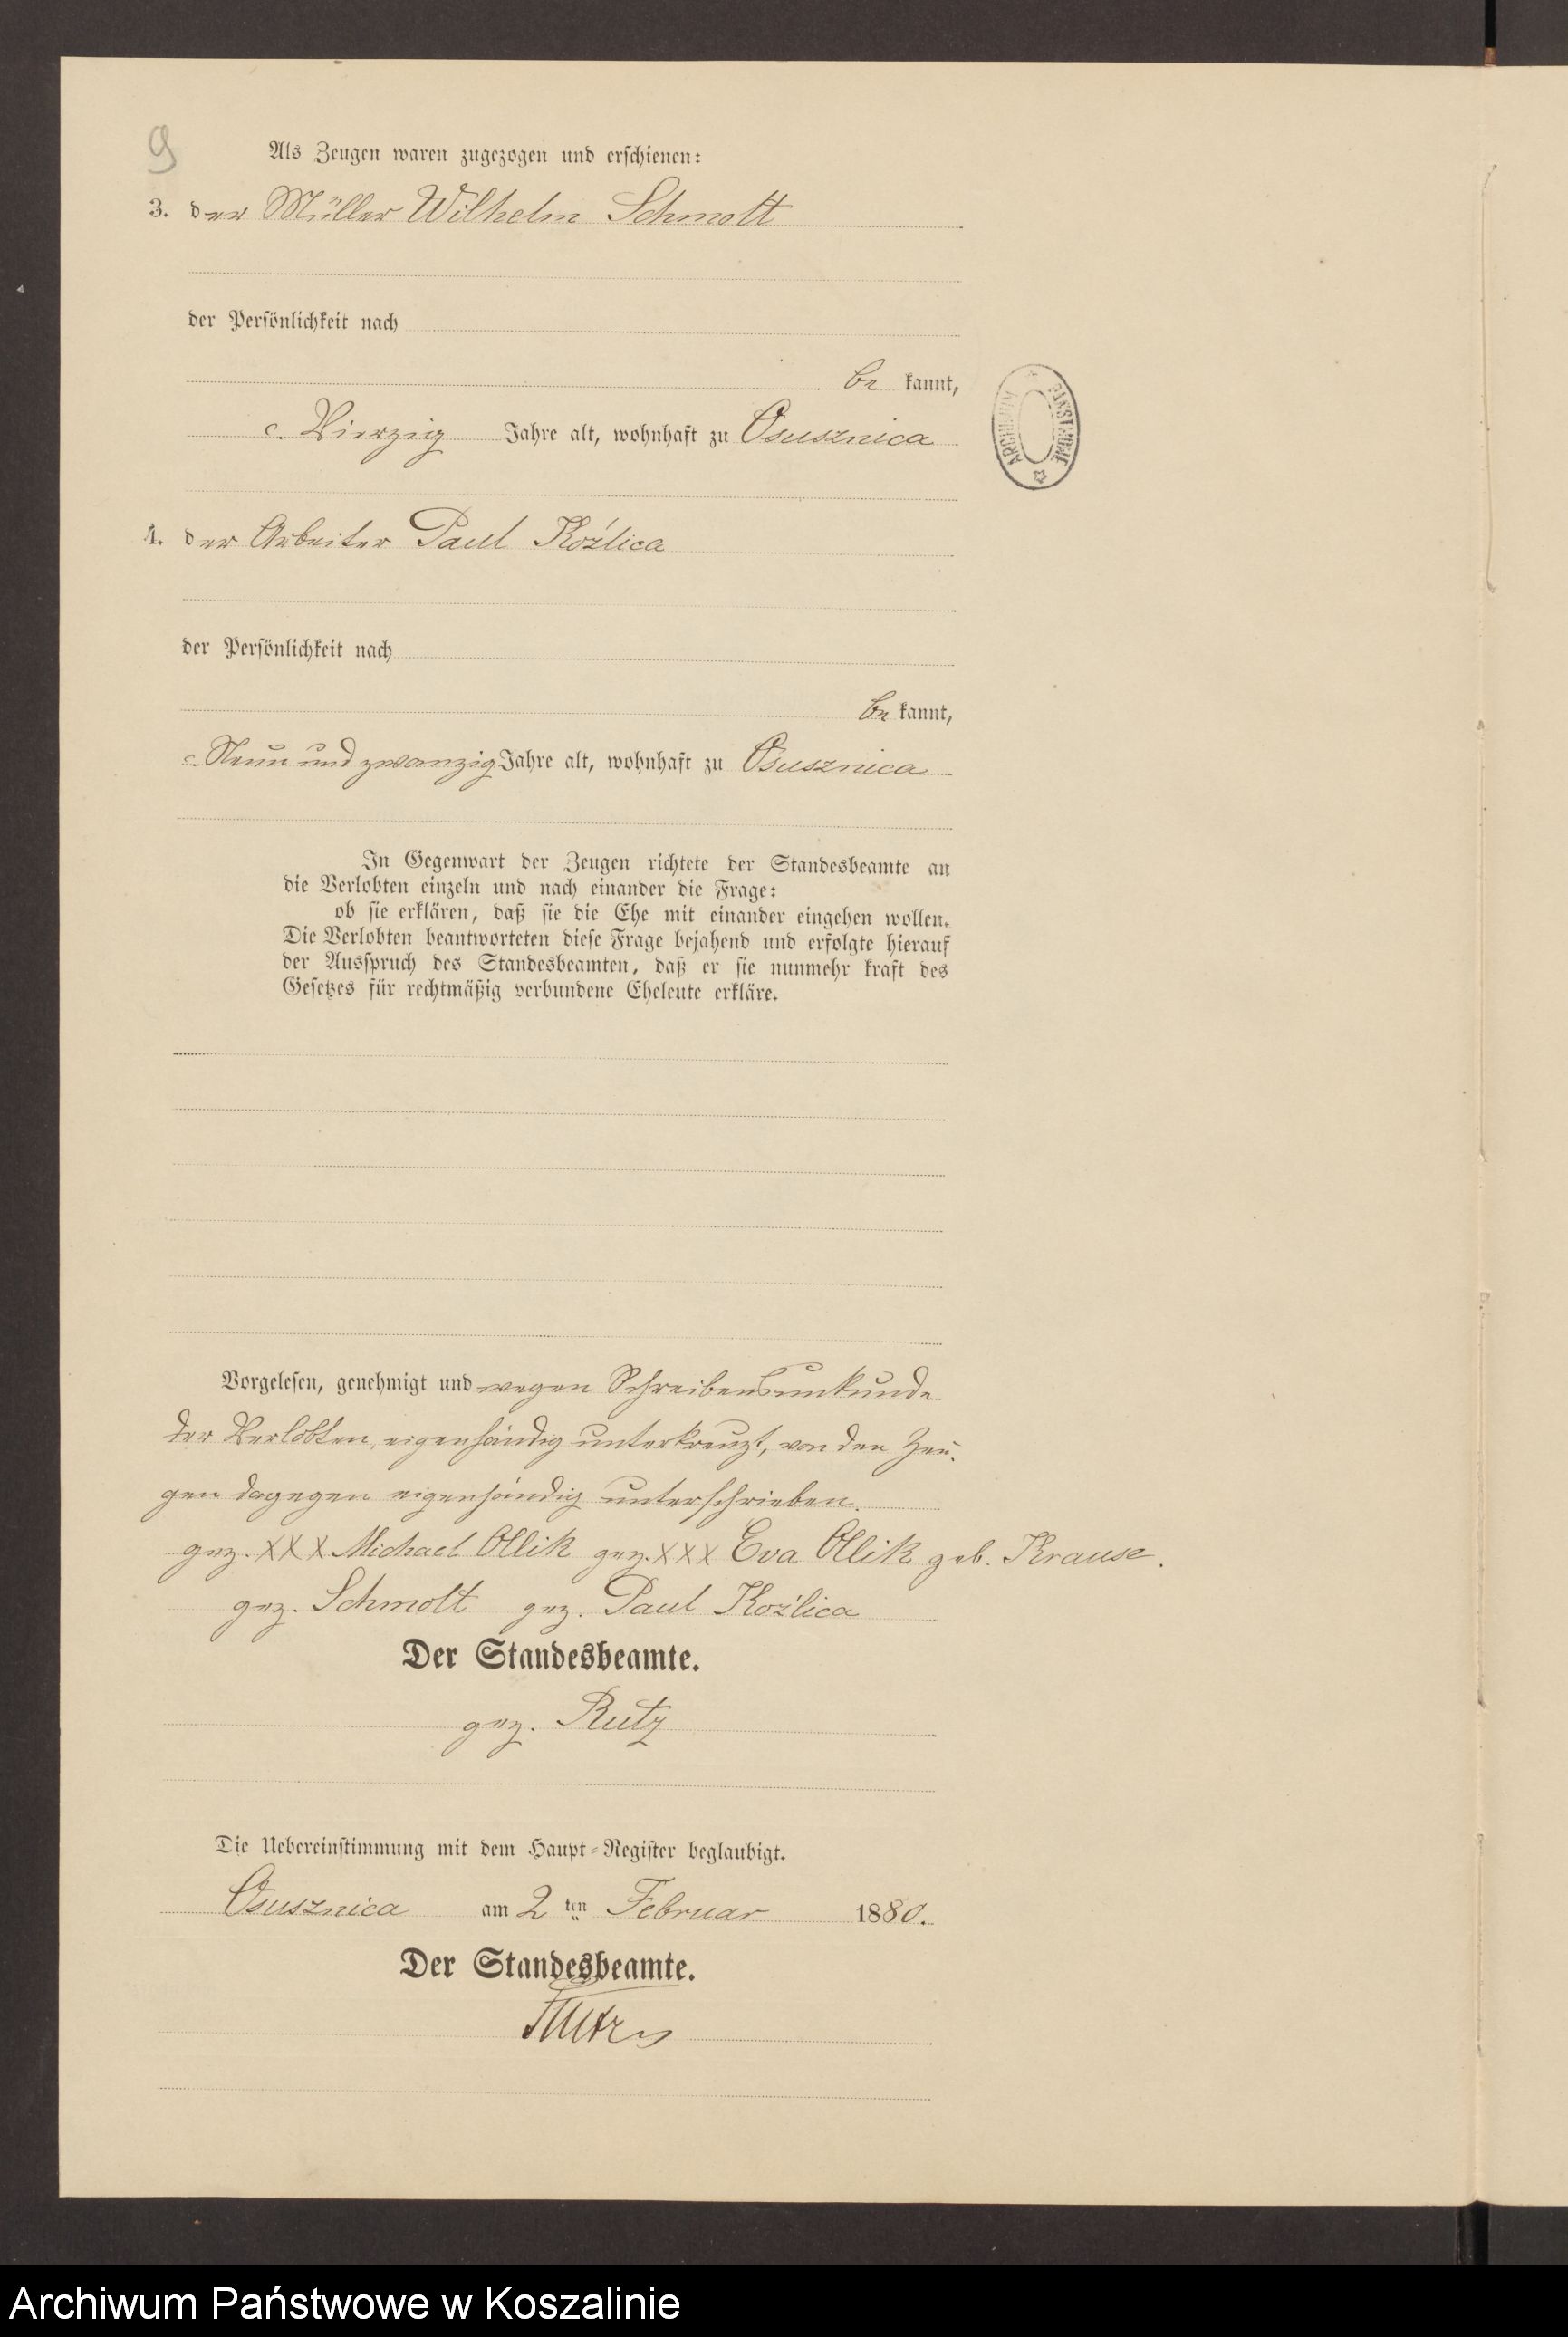 9
Als Zeugen waren zugezogen und erschienen:
3. der Müller Wilhelm Schmolt
der Persönlichkeit nach
be kannt,
c. Vierzig Jahre alt, wohnhaft zu Osusznica
ARCHIWUM PAŃSTWOWE
4. der Arbeiter Paul Koźlica
der Persönlichkeit nach
be kannt,
c. Neun und zwanzig Jahre alt, wohnhaft zu Osusznica
In Gegenwart der Zeugen richtete der Standesbeamte an
die Verlobten einzeln und nach einander die Frage:
ob sie erklären, daß sie die Ehe mit einander eingehen wollen.
Die Verlobten beantworteten diese Frage bejahend und erfolgte hierauf
der Ausspruch des Standesbeamten, daß er sie nunmehr kraft des
Gesetzes für rechtmäßig verbundene Eheleute erkläre.
Vorgelesen, genehmigt und wegen Schreibensunkunde
der Verlobten, eigenhändig unterkreuzt, von den Zeu-
gen dagegen eigenhändig unterschrieben.
gez. XXX Michael Ollik gez. XXX Eva Ollik geb. Krause.
gez. Schmolt gez. Paul Koźlica
Der Standesbeamte.
gez. Rutz
Die Uebereinstimmung mit dem Haupt-Register beglaubigt.
Osusznica am 2 ten Februar 1880.
Der Standesbeamte.
Rutz
Archiwum Państwowe w Koszalinie